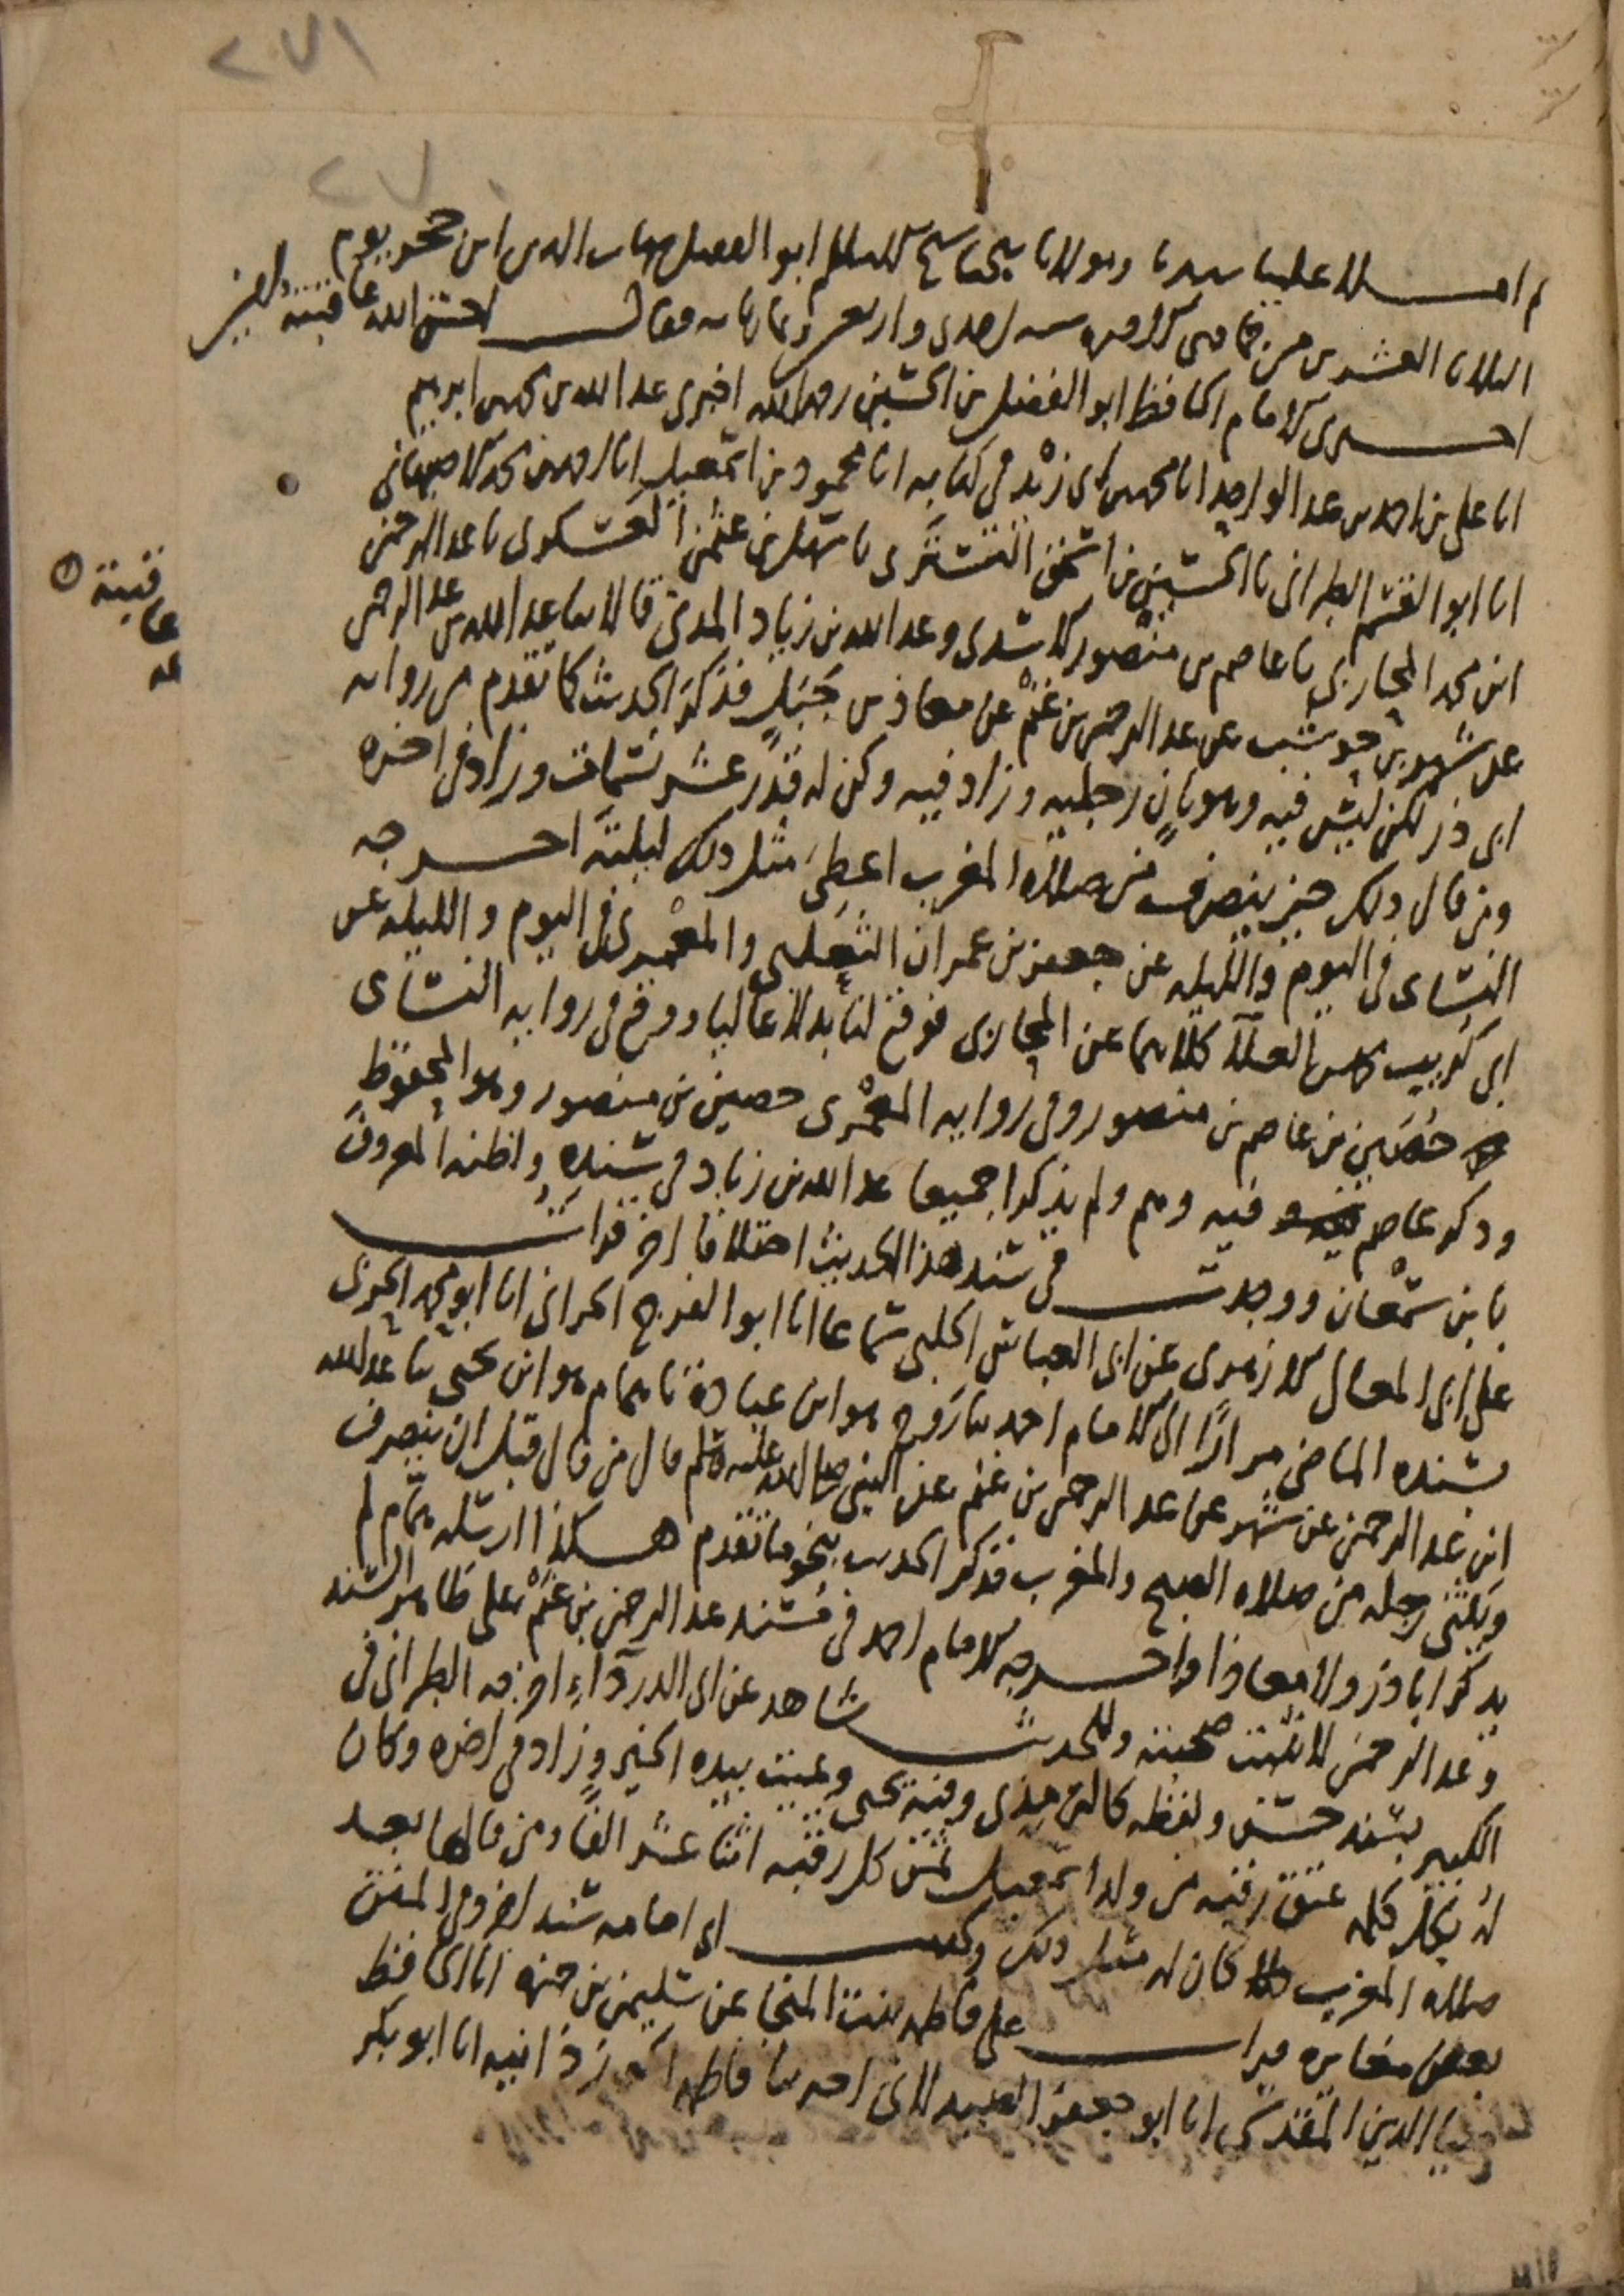 ٢٧١
٢٧٠
ثم املا علينا سيدنا ومولانا شيخنا شيخ الاسلام ابو الفضل شهاب الدين ابن حجر يوم
الثلاثا العشرين من جمادى الاخره سنه احدى واربعين وثمان مايه فقال احسن الله عاقبته
اخبرني الامام الحافظ ابو الفضل بن الحسين رحمه الله اخبرني عبد الله بن محمد بن ابرهيم
انا علي بن احمد بن عبد الواحد انا محمد بن ابي زيد في كتابه انا محمود بن اسمعيل انا احمد بن محمد الاصبهاني
انا ابو القسم الطبراني نا الحسين بن اسحق التستري نا سهل بن عثمن العسكري نا عبد الرحمن
ابن محمد المحاربي نا عاصم بن منصور الاسدي وعبد الله بن زياد المدني قالا ثنا عبد الله بن عبد الرحمن
عن شهر بن حوشب عن عبد الرحمن بن غنم عن معاذ بن جبل فذكر الحديث كما تقدم من روايه
ابي ذر لكن ليس فيه وهو ثان رجليه وزاد فيه وكن له قدر عشر نسمات وزاد في اخره
ومن قال ذلك حين ينصرف من صلاة المغرب اعطي مثل ذلك ليلته اخرجه
النسائي في اليوم والليله عن جعفر بن عمران الثعلبي والمعمري في اليوم والليله عن
ابي كريب محمد بن العلاء كلاهما عن المحاربي فوقع لنا بدلا عاليا ووقع في روايه النسائي
حصين بن عاصم بن منصور وفي روايه المعمري حصين بن منصور وهو المحفوظ
وذكر عاصم فيه وهم ولم يذكرا جميعا عبد الله بن زياد في سنده واظنه المعروف
بابن سمعان ووجدت في سند هذا الحديث اختلافا اخر قرات
على ابي المعالي الازهري عن ابي العباس الحلبي سماعا انا ابو الفرج الحراني انا ابو محمد الحربي
بسنده الماضي مرارا الى الامام احمد ثنا روح هو ابن عبادة نا همام هو ابن يحيى ثنا عبد الله
ابن عبد الرحمن عن شهر عن عبد الرحمن بن غنم عن النبي صلى الله عليه وسلم قال من قال قبل ان ينصرف
ويثني رجله من صلاه الصبح والمغرب فذكر الحديث بنحو ما تقدم هكذا ارسله همام لم
يذكر ابا ذر ولا معاذا واخرجه الامام احمد في مسند عبد الرحمن بن غنم على ظاهر السند
وعبد الرحمن لا تثبت صحبته وللحديث شاهد عن ابي الدرداء اخرجه الطبراني في
الكبير بسند حسن ولفظه كالترمذي وفيه يحيي ويميت بيده الخير وزاد في اخره وكان
له بكل كلمه عتق رقبه من ولد اسمعيل ثمن كل رقبه اثنا عشر الفا ومن قالها بعد
صلاه المغرب كان له مثل ذلك وعن ابي امامه سند اخر وفي المتن
بعض مغايره قرات على فاطمه بنت المنجا عن سليمن بن حمزه انا الحافظ
ضيا الدين المقدسي انا ابو جعفر الصيدلاني اخبرتنا فاطمه الجوزذانيه انا ابو بكر
عاقبته